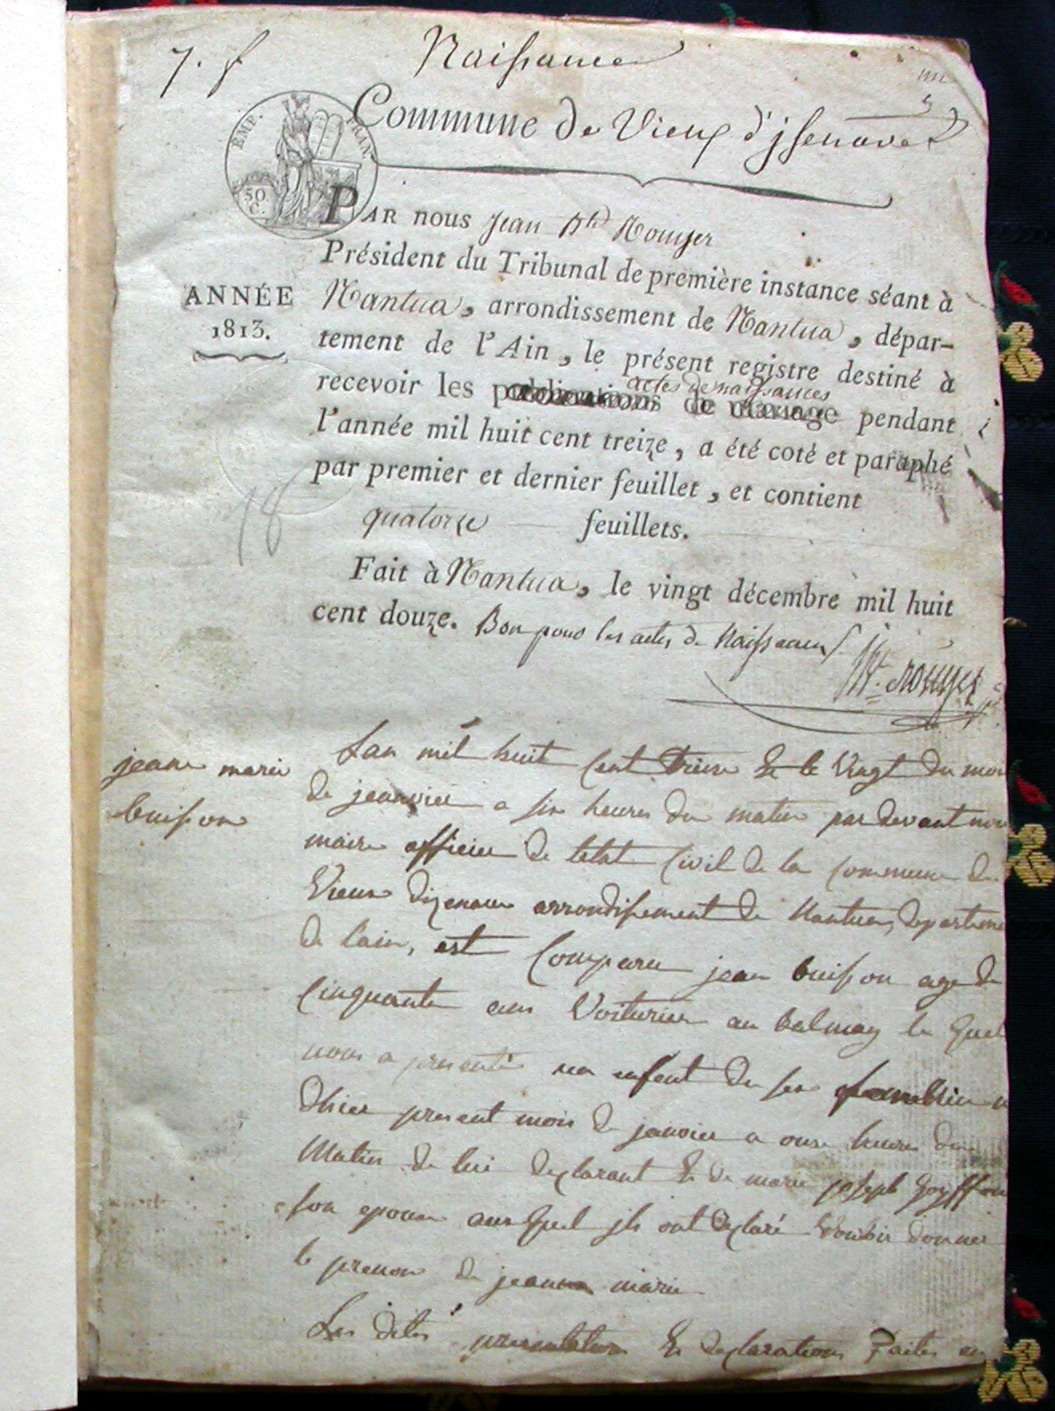 7. f Naissance
Commune de Vieux d'jsenave
EMP. FRAN.
50 C.
PAR nous Jean Bte Rouyer
Président du Tribunal de première instance séant à
ANNÉE
1813.
Nantua, arrondissement de Nantua, dépar-
tement de l'Ain, le présent registre destiné à
actes de naissances
recevoir les publications de mariage pendant
l'année mil huit cent treize, a été coté et paraphé
par premier et dernier feuillet, et contient
quatorze feuillets.
Fait à Nantua, le vingt décembre mil huit
cent douze. Bon pour les actes de Naissances
Bte Rouyer
jeane marie
buisson
Lan mil huit Cent Treize & le Vingt du mois
de jeanvier a six heures du matin par devant nous
maire officier de letat Civil de la Commune de
Vieux dizenave arrondissement de Nantua, departement
de lain, est Comparu jean buisson age de
Cinquante ans Voiturier au balmay le quel
nous a presenté un enfent du sex
dhier present mois de janvier a onze heures du
Matin de lui declarant & de marie joseph Goyffon
son epouse auxquel jls ont declaré vouloir donner
le prenom de jeanne marie
Les dites presentation & declarations Faites en